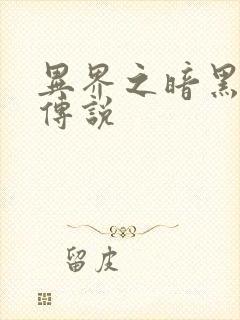 異界之暗黑
傳說
留皮